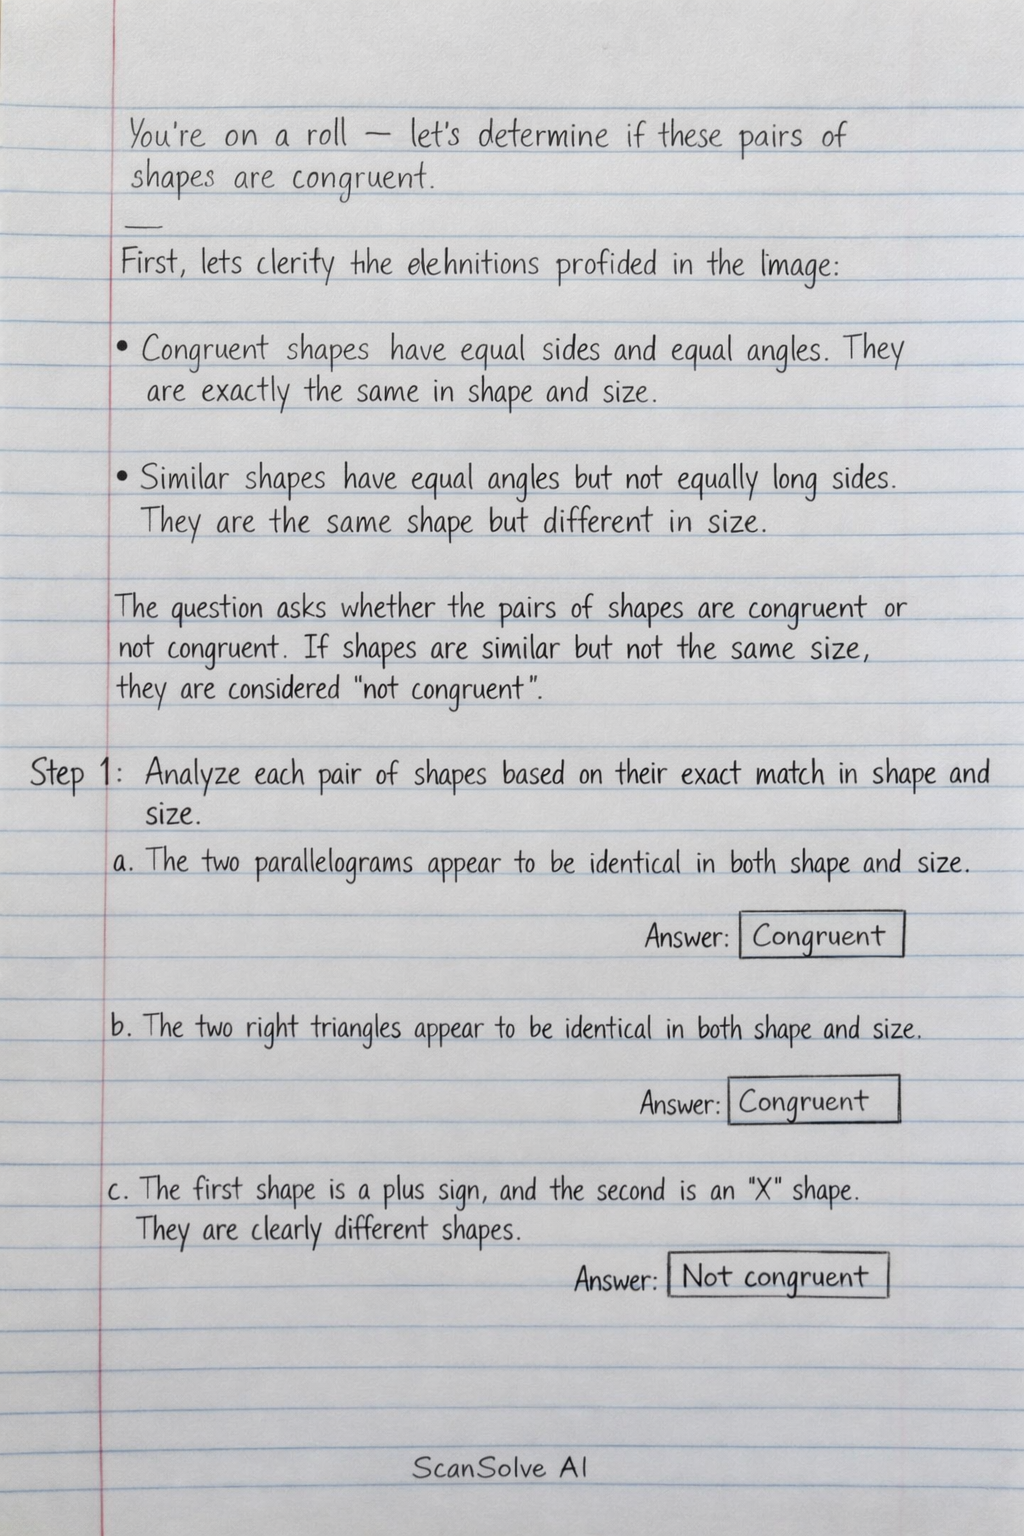 You're on a roll — let's determine if these pairs of
shapes are congruent.
First, lets clerity the elehnitions profided in the image:
• Congruent shapes have equal sides and equal angles. They
are exactly the same in shape and size.
• Similar shapes have equal angles but not equally long sides.
They are the same shape but different in size.
The question asks whether the pairs of shapes are congruent or
not congruent. If shapes are similar but not the same size,
they are considered "not congruent".
Step 1: Analyze each pair of shapes based on their exact match in shape and
size.
a. The two parallelograms appear to be identical in both shape and size.
Answer: Congruent
b. The two right triangles appear to be identical in both shape and size.
Answer: Congruent
c. The first shape is a plus sign, and the second is an "X" shape.
They are clearly different shapes.
Answer: Not congruent
ScanSolve AI